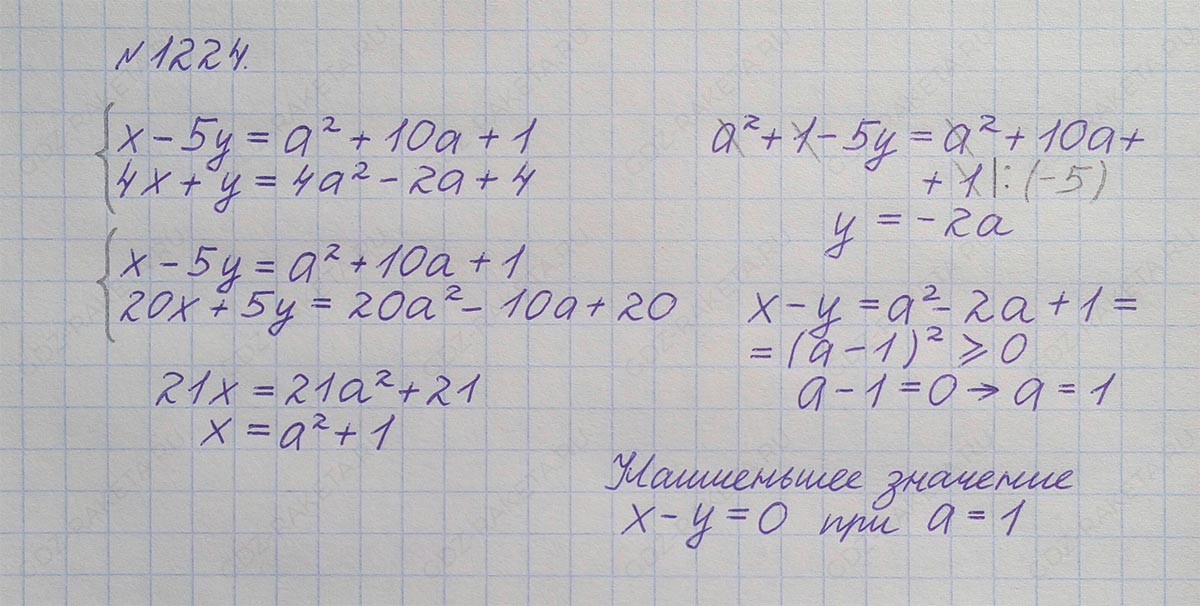 N1224.
x - 5y = a² + 10a + 1
4x + y = 4a² - 2a + 4
x - 5y = a² + 10a + 1
20x + 5y = 20a² - 10a + 20
21x = 21a² + 21
x = a² + 1
a² + 1 - 5y = a² + 10a +
+ 1 |: (-5)
y = -2a
x - y = a² - 2a + 1 =
= (a - 1)² ⩾ 0
a - 1 = 0 → a = 1
Наименьшее значение
x - y = 0 при a = 1